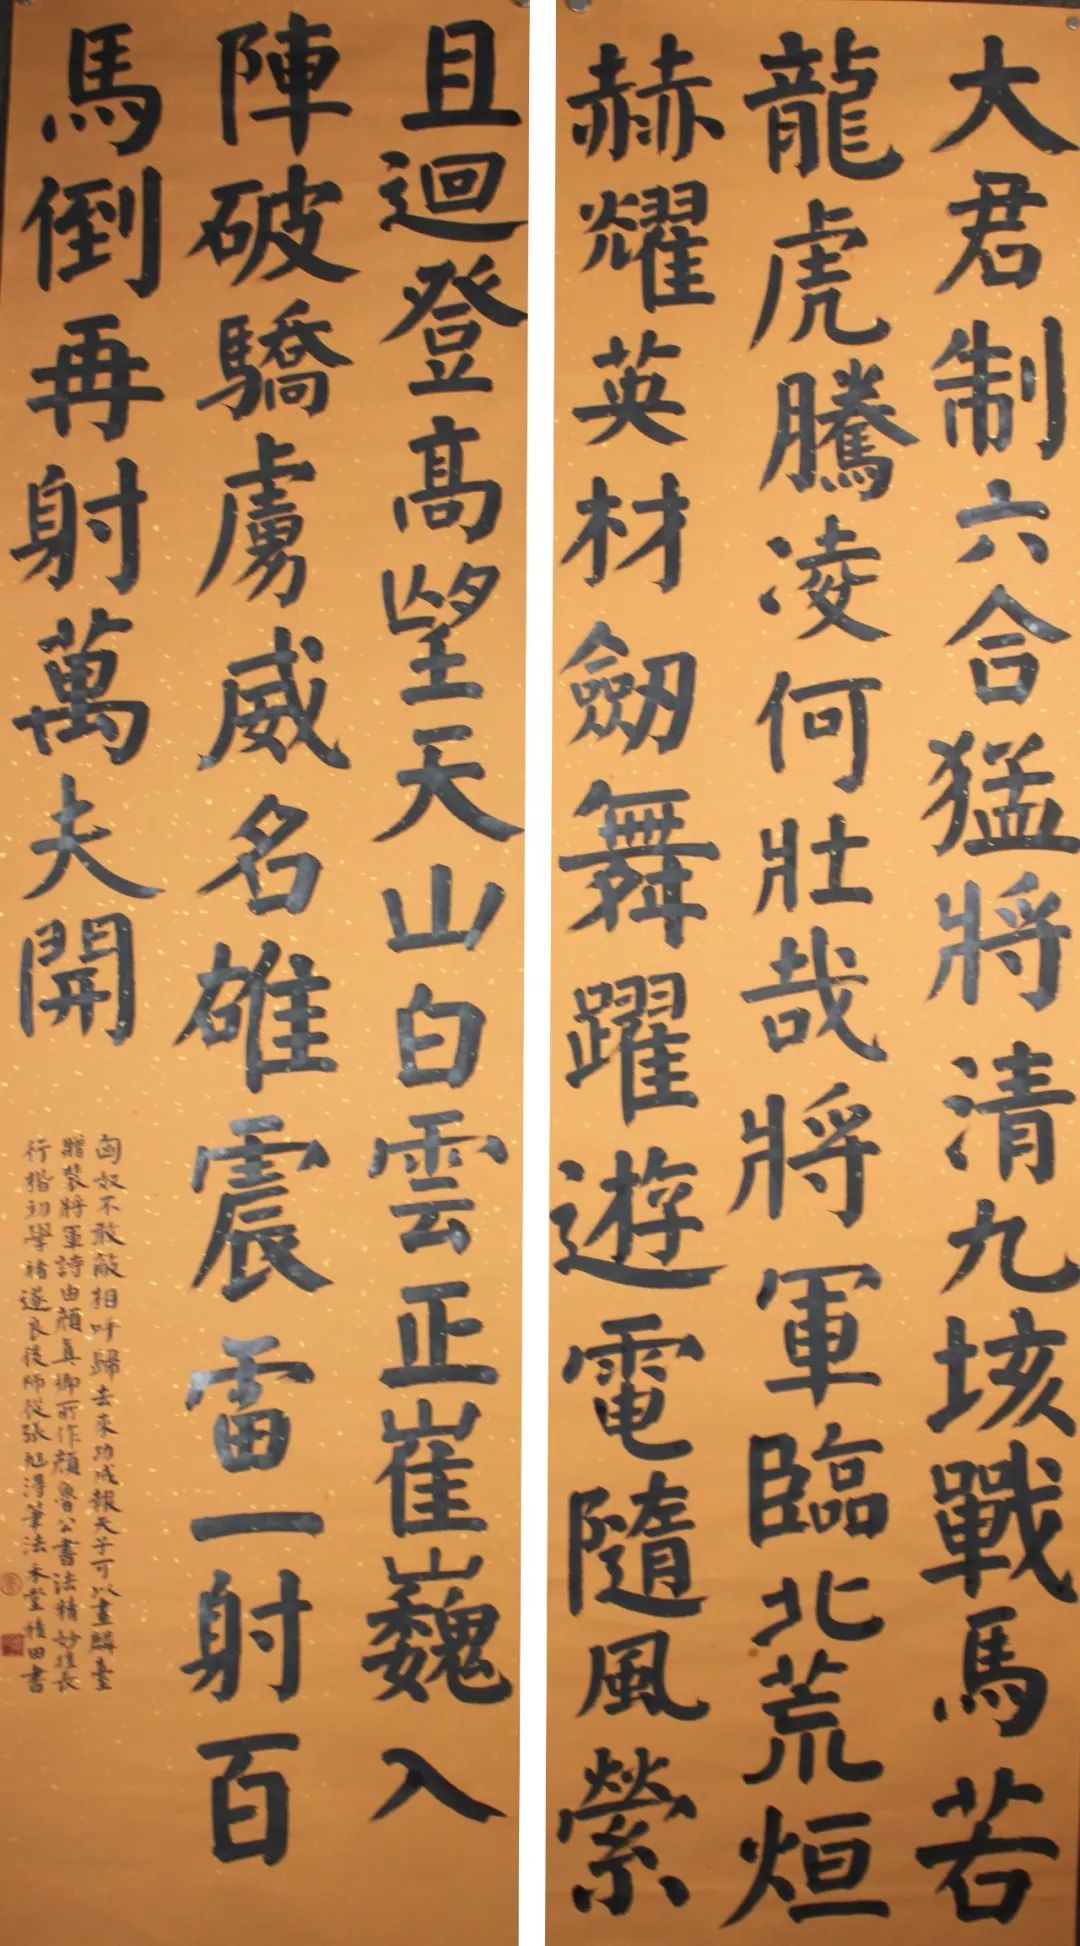 大君制六合猛將清九垓戰馬若
龍虎騰凌何壯哉將軍臨北荒烜
赫耀英材劒舞躍遊電隨風縈
且迴登高望天山白雲正崔巍入
陣破驕虜威名雄震雷一射百
馬倒再射萬夫開
匈奴不敢敵相呼歸去來功成報天子可以畫麟臺
贈裴將軍詩由顏真卿所作顏魯公書法精妙擅長
行楷初學褚遂良後師從張旭得筆法 書